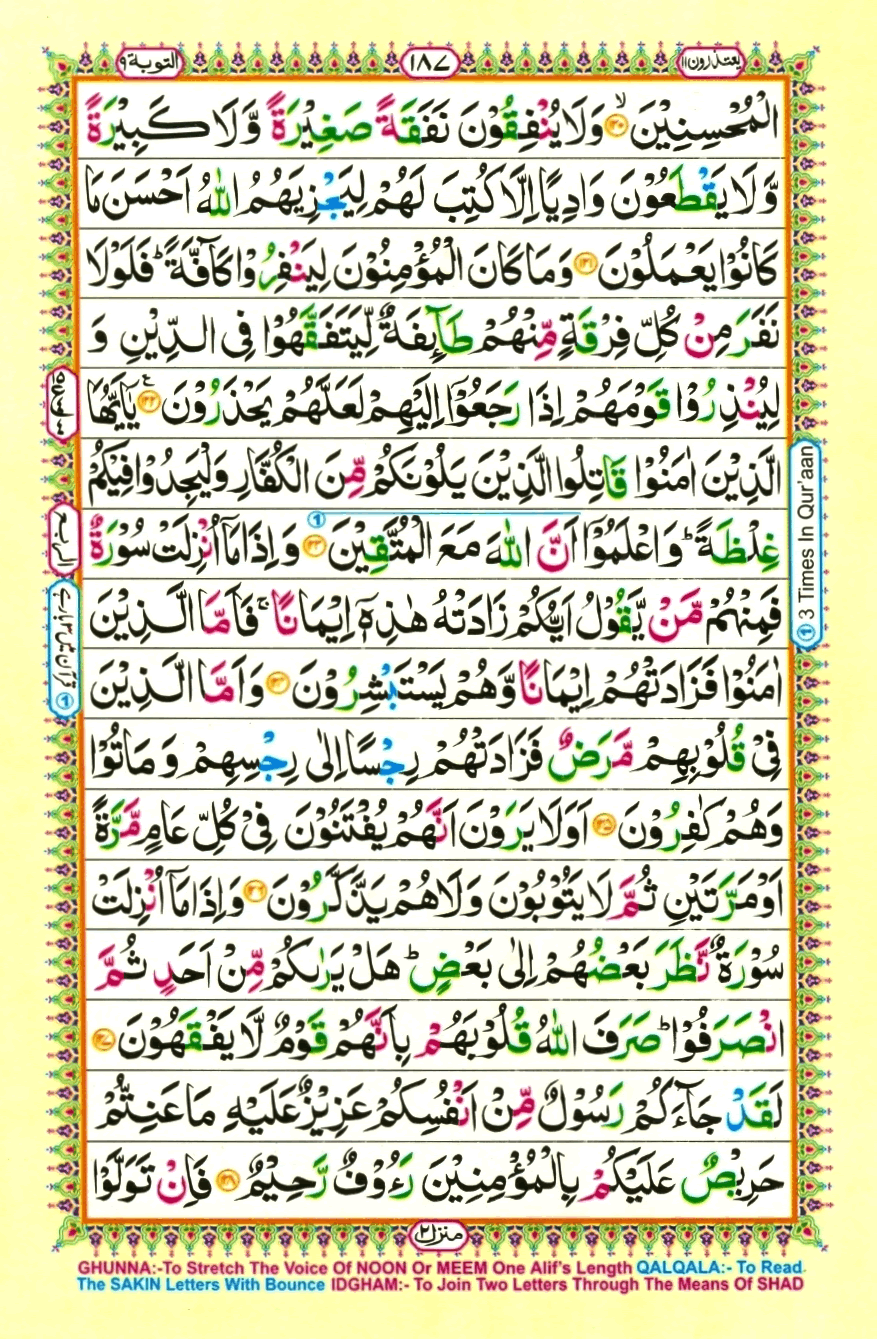 التوبة ٩
١٨٧
يعتذرون ١١
الْمُحْسِنِيْنَ ۙ﴿۱۲۰﴾ وَلَا يُنْفِقُوْنَ نَفَقَةً صَغِيْرَةً وَّلَا كَبِيْرَةً
وَّلَا يَقْطَعُوْنَ وَادِيًا اِلَّا كُتِبَ لَهُمْ لِيَجْزِيَهُمُ اللّٰهُ اَحْسَنَ مَا
كَانُوْا يَعْمَلُوْنَ ﴿۱۲۱﴾ وَمَا كَانَ الْمُؤْمِنُوْنَ لِيَنْفِرُوْا كَآفَّةً ؕ فَلَوْلَا
نَفَرَ مِنْ كُلِّ فِرْقَةٍ مِّنْهُمْ طَآىِٕفَةٌ لِّيَتَفَقَّهُوْا فِى الدِّيْنِ وَ
لِيُنْذِرُوْا قَوْمَهُمْ اِذَا رَجَعُوْۤا اِلَيْهِمْ لَعَلَّهُمْ يَحْذَرُوْنَ ﴿۱۲۲﴾ ع يٰۤاَيُّهَا
الَّذِيْنَ اٰمَنُوْا قَاتِلُوا الَّذِيْنَ يَلُوْنَكُمْ مِّنَ الْكُفَّارِ وَلْيَجِدُوْا فِيْكُمْ
غِلْظَةً ؕ وَاعْلَمُوْۤا اَنَّ اللّٰهَ مَعَ الْمُتَّقِيْنَ ﴿۱۲۳﴾ وَاِذَا مَاۤ اُنْزِلَتْ سُوْرَةٌ
فَمِنْهُمْ مَّنْ يَّقُوْلُ اَيُّكُمْ زَادَتْهُ هٰذِهٖۤ اِيْمَانًا ۚ فَاَمَّا الَّذِيْنَ
اٰمَنُوْا فَزَادَتْهُمْ اِيْمَانًا وَّهُمْ يَسْتَبْشِرُوْنَ ﴿۱۲۴﴾ وَاَمَّا الَّذِيْنَ
فِىْ قُلُوْبِهِمْ مَّرَضٌ فَزَادَتْهُمْ رِجْسًا اِلٰى رِجْسِهِمْ وَمَاتُوْا
وَهُمْ كٰفِرُوْنَ ﴿۱۲۵﴾ اَوَلَا يَرَوْنَ اَنَّهُمْ يُفْتَنُوْنَ فِىْ كُلِّ عَامٍ مَّرَّةً
اَوْ مَرَّتَيْنِ ثُمَّ لَا يَتُوْبُوْنَ وَلَا هُمْ يَذَّكَّرُوْنَ ﴿۱۲۶﴾ وَاِذَا مَاۤ اُنْزِلَتْ
سُوْرَةٌ نَّظَرَ بَعْضُهُمْ اِلٰى بَعْضٍ ؕ هَلْ يَرٰىكُمْ مِّنْ اَحَدٍ ثُمَّ
انْصَرَفُوْا ؕ صَرَفَ اللّٰهُ قُلُوْبَهُمْ بِاَنَّهُمْ قَوْمٌ لَّا يَفْقَهُوْنَ ﴿۱۲۷﴾
لَقَدْ جَآءَكُمْ رَسُوْلٌ مِّنْ اَنْفُسِكُمْ عَزِيْزٌ عَلَيْهِ مَا عَنِتُّمْ
حَرِيْصٌ عَلَيْكُمْ بِالْمُؤْمِنِيْنَ رَءُوْفٌ رَّحِيْمٌ ﴿۱۲۸﴾ فَاِنْ تَوَلَّوْا
الربع
① 3 Times In Qur'aan
منزل ٢
GHUNNA:-To Stretch The Voice Of NOON Or MEEM One Alif's Length QALQALA:- To Read
The SAKIN Letters With Bounce IDGHAM:- To Join Two Letters Through The Means Of SHAD